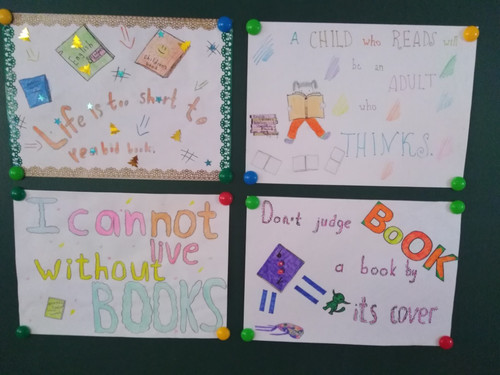 Life is too short to
read bad books.
A CHILD who READS will
be an
ADULT
who
THINKS.
I cannot
live
without
BOOKS
Don't judge
BOOK
a book by
its cover